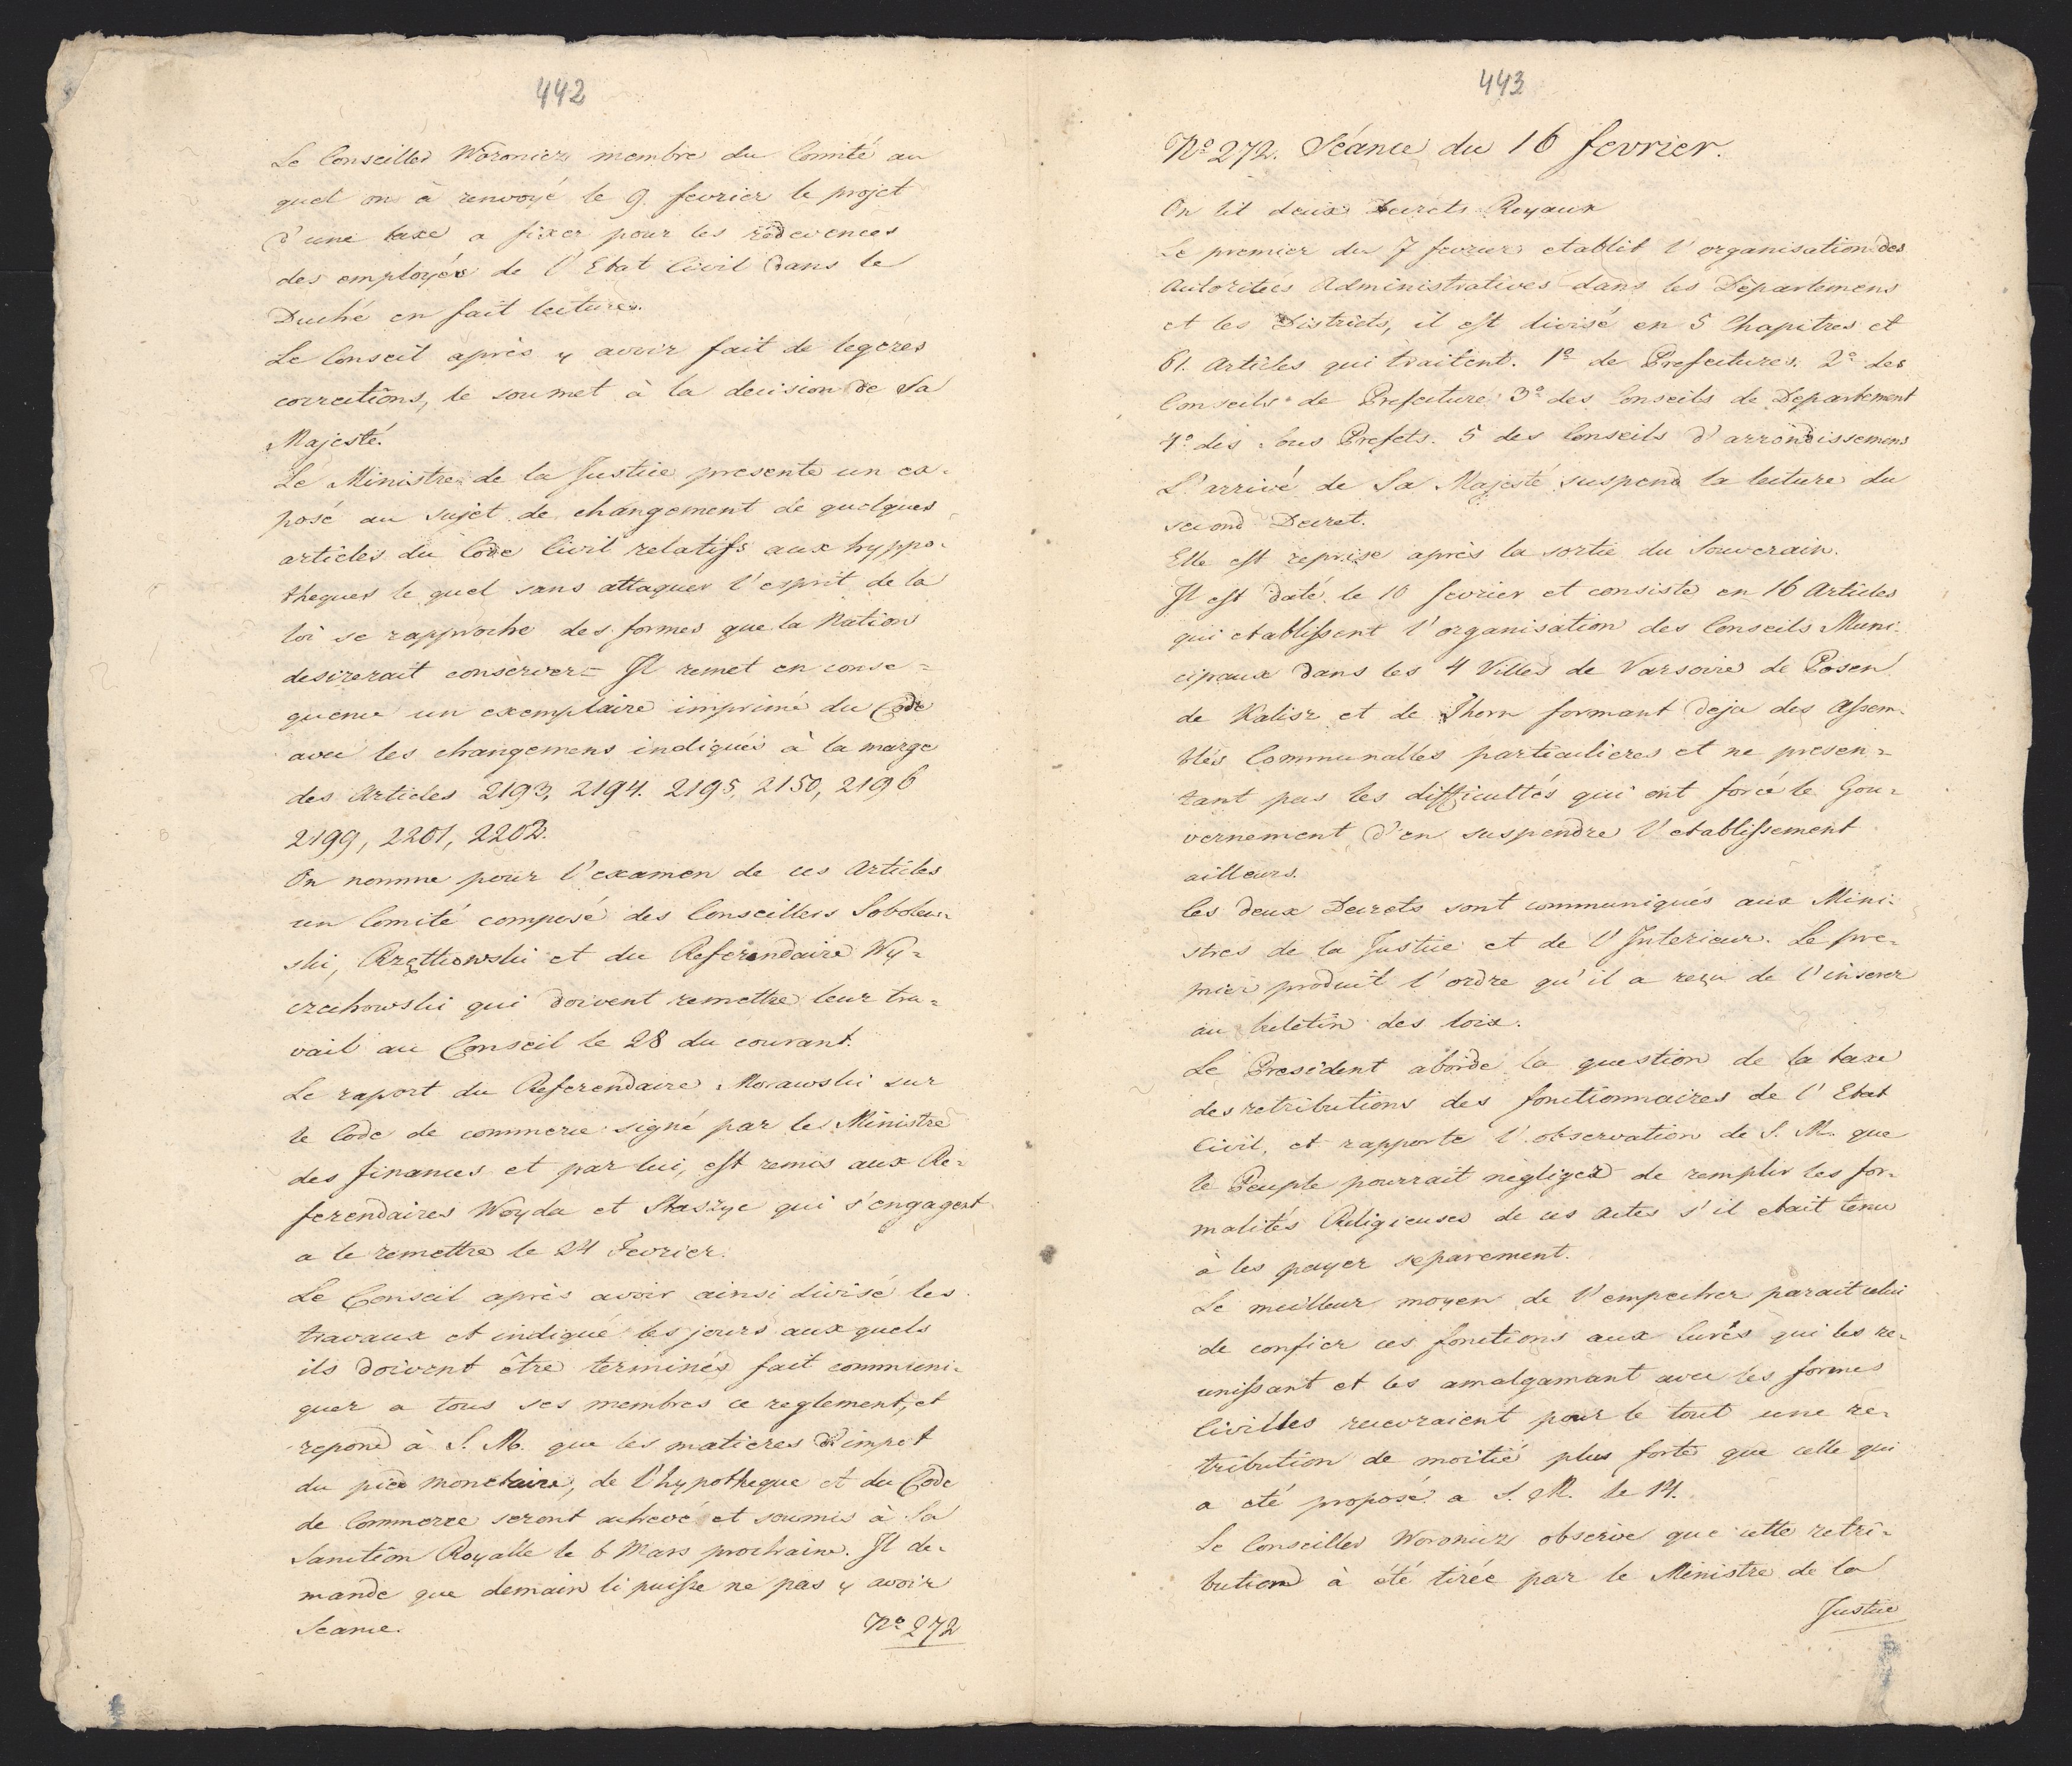 442
Le Conseiller Woronicz membre du Comité au
quel on à renvoyé le 9. fevrier le projet
d'une taxe a fixer pour les redevences
des employés de l'Etat Civil dans le
Duché en fait lecture.
Le Conseil après y avoir fait de legeres
corrections, le soumet à la decision de Sa
Majesté.
Le Ministre de la Justice presente un ex-
posé au sujet de changement de quelques
articles du Code Civil relatifs aux hyppo-
theques le quel sans attaquer l'esprit de la
loi se rapproche des formes que la Nation
desirerait conserver = Il remet en conse=
quence un exemplaire imprimé du Code
avec les changemens indiqués à la marge
des Articles 2193, 2194. 2195, 2150, 2196
2199, 2201, 2202.
On nomme pour l'examen de ces Articles
un Comité composé des Conseillers Sobolew-
ski, Rzętkowski et du Referendaire Wy=
czechowski qui doivent remettre leur tra=
vail au Conseil le 28 du courant.
Le raport du Referendaire Morawski sur
le Code de commerce signé par le Ministre
des finances et par lui, est remis aux Re-
ferendaires Woyda et Staszyc qui s'engagent
a le remettre le 24 Fevrier.
Le Conseil après avoir ainsi divisé les
travaux et indiqué les jours aux quels
ils doivent être terminés fait communi-
quer a tous ses membres ce reglement, et
repond à S. M. que les matieres d'impot
du pied monetaire, de l'hypotheque et du Code
de Commerce seront achevé et soumis à Sa
Sanction Royalle le 6 Mars prochaine. Il de-
mande que demain il puisse ne pas y avoir
Seance.
No 272
443
No 272. Séance du 16 fevrier.
On lit deux Decrets Royaux
Le premier du 7 fevrier etablit l'organisation des
Autorités Administratives dans les Departemens
et les Districts, il est divisé en 5 Chapitres et
61. Articles qui traitent. 1o de Prefectures. 2o des
Conseils de Prefecture 3o des Conseils de Departement
4o des Sous Prefets. 5 des Conseils d'arrondissemens
L'arrivé de Sa Majesté suspend la lecture du
second Decret.
Elle est reprise après la sortie du Souverain.
Il est daté le 10 fevrier et consiste en 16 Articles
qui etablissent l'organisation des Conseils Muni-
cipaux dans les 4 Villes de Varsovie de Posen
de Kalisz et de Thorn formant deja des Assem-
blés Communalles particulieres et ne presen=
tant pas les difficultés qui ont forcé le Gou=
vernement d'en suspendre l'etablissement
ailleurs.
les deux Decrets sont communiqués aux Mini-
stres de la Justice et de l'Interieur. Le pre-
mier produit l'ordre qu'il a reçu de l'inserer
au buletin des loix.
Le President aborde la question de la taxe
des retributions des fonctionnaires de l'Etat
Civil, et rapporte l'observation de S. M. que
le Peuple pourrait negliger de remplir les for-
malités Religieuses de ces actes s'il etait tenu
à les payer separement.
Le meilleur moyen de l'empecher parait celui
de confier ces fonctions aux Curés qui les re-
unissant et les amalgamant avec les formes
Civilles recevraient pour le tout une re-
tribution de moitié plus forte que celle qui
a eté proposé a S. M. le 14.
Le Conseiller Woronicz observe que cette retri-
bution à été tirée par le Ministre de la
Justice